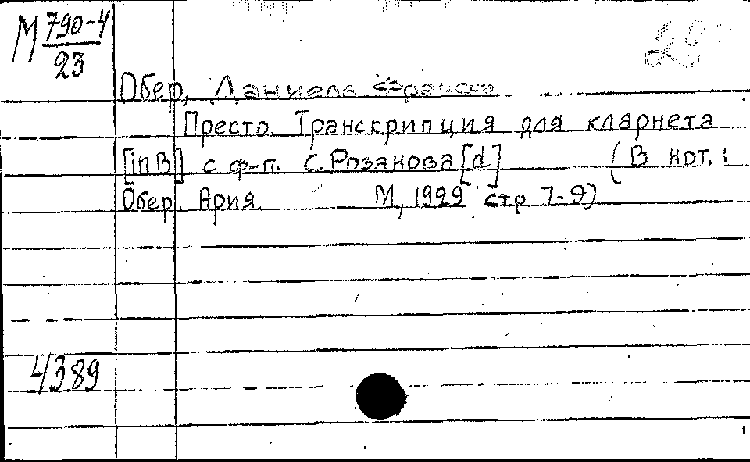 М 790-4
23
Обер, Даниель Франсуа
Престо. Транскрипция для кларнета
[in B] с ф-п. С. Розанова [d] (В нот.:
Обер. Ария. М, 1929 стр 7-9)
4389